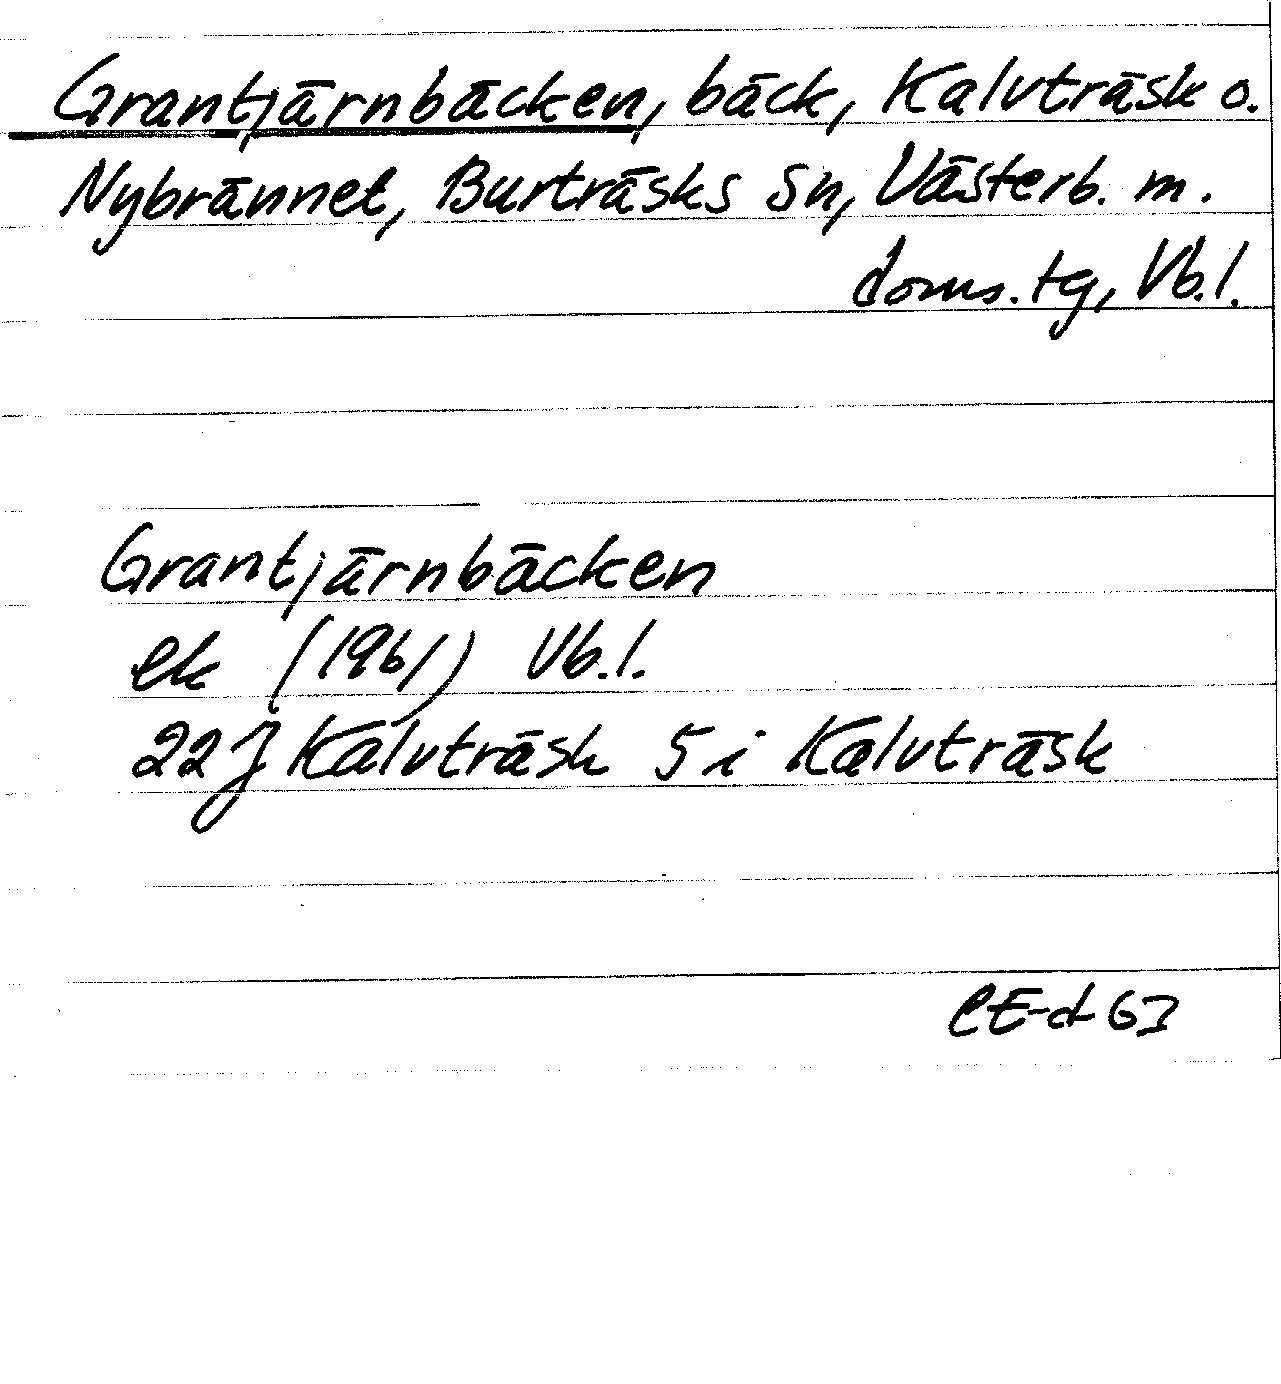 Grantjärnbäcken, bäck, Kalvträsk o.
Nybrännet, Burträsks sn, Västerb. m.
doms. tg, Vb. l.
Grantjärnbäcken
ek (1961) Vb. l.
22J Kalvträsk 5 i Kalvträsk
CE-d 63